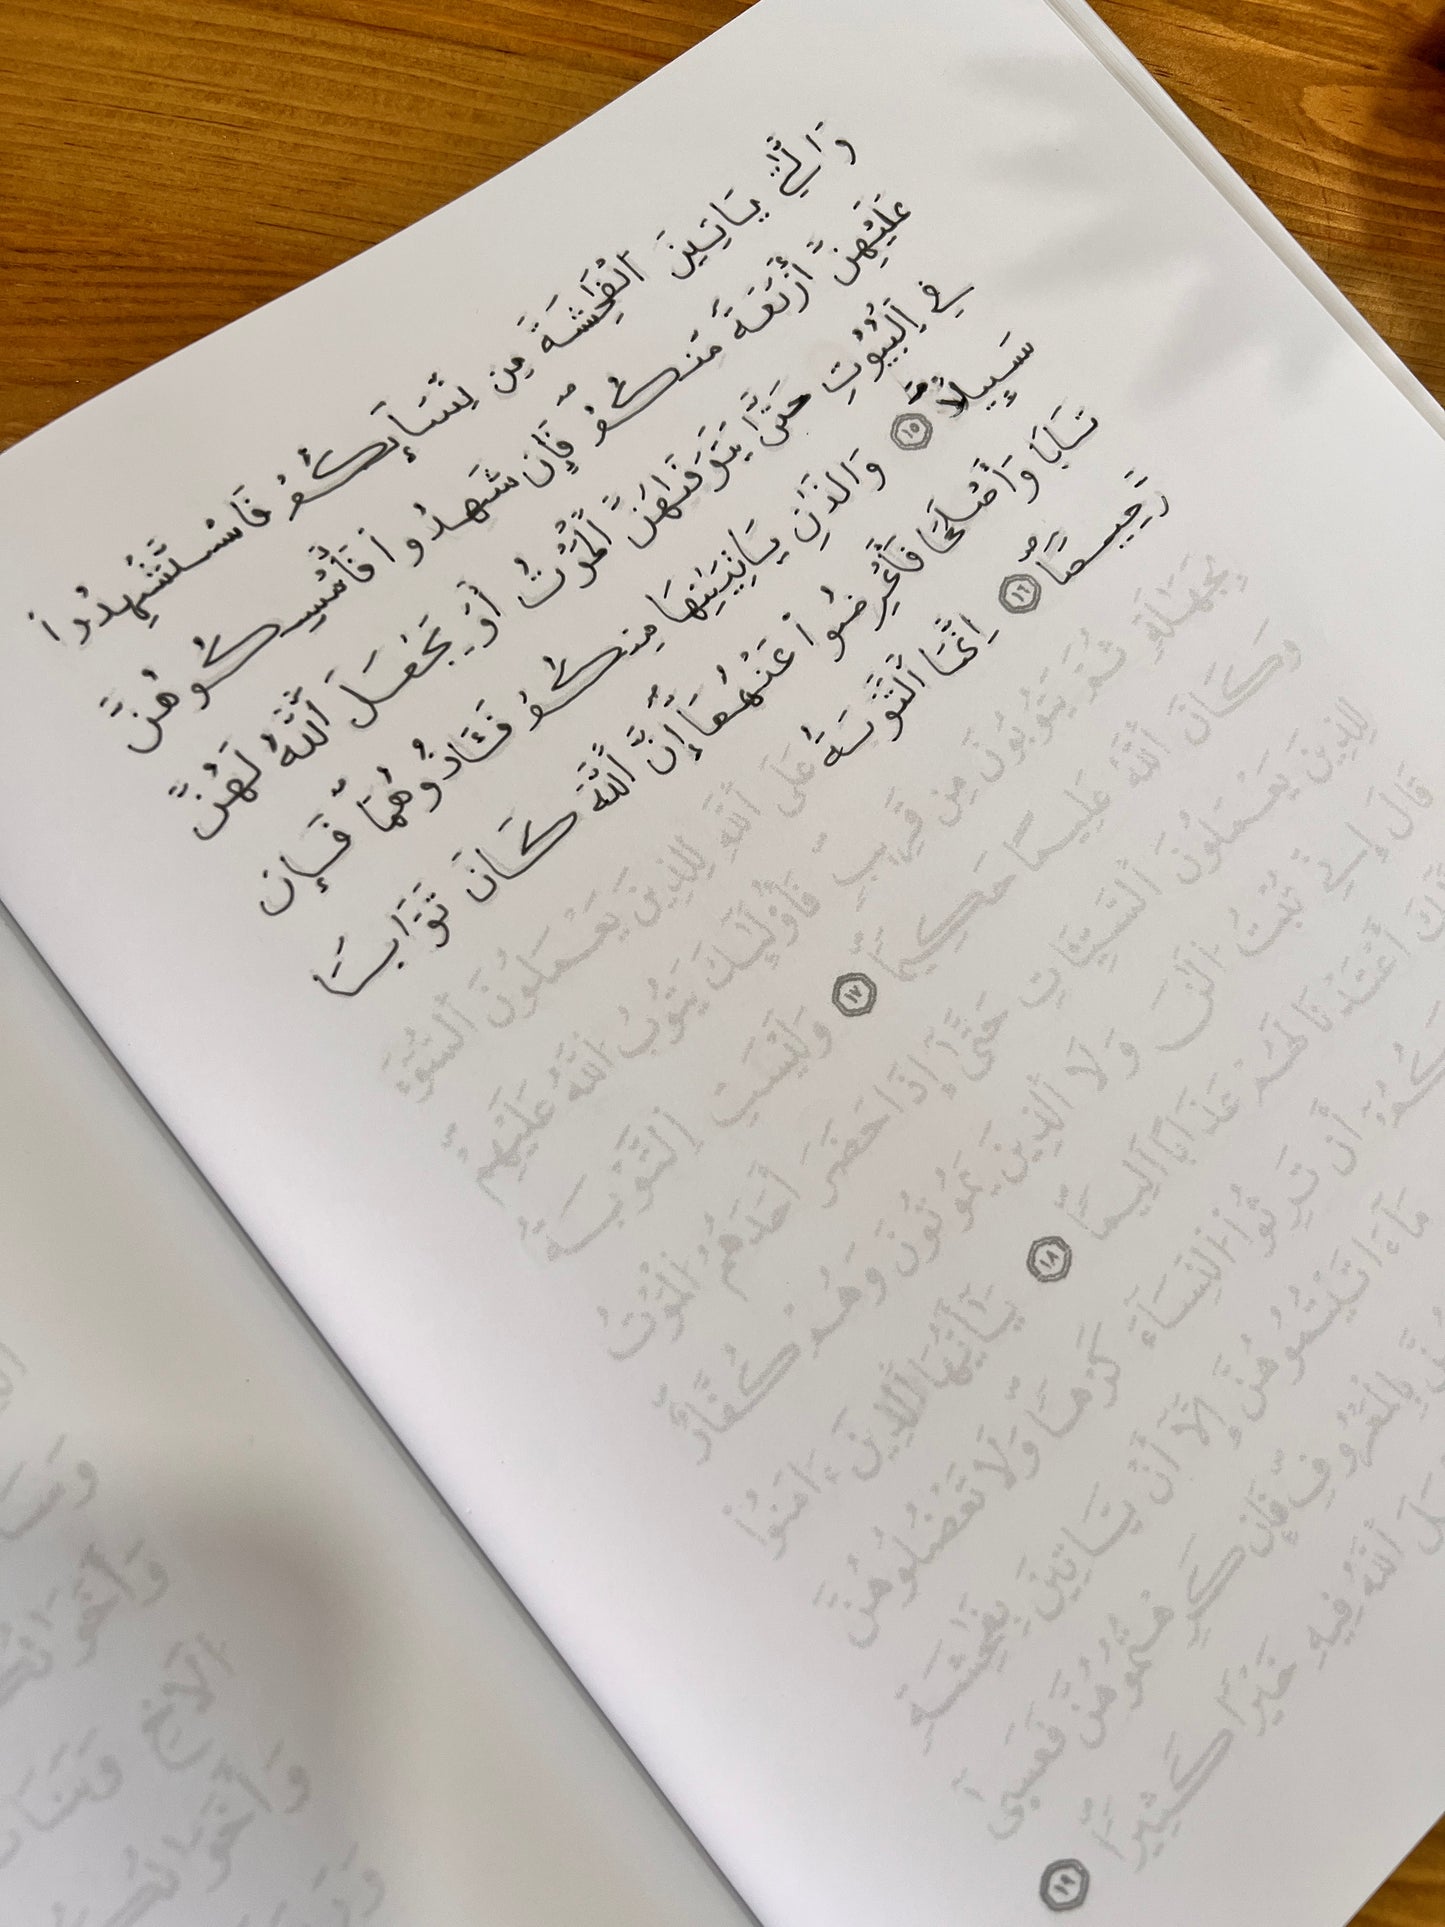 وَالَّٰتِے يَاتِينَ اَلْفَٰحِشَةَ مِن نِّسَآئِكُمْ فَاسْتَشْهِدُواْ
عَلَيْهِنَّ أَرْبَعَةً مِّنكُمْ فَإِن شَهِدُواْ فَأَمْسِكُوهُنَّ
فِے اِلْبُيُوتِ حَتَّىٰ يَتَوَفَّىٰهُنَّ اَلْمَوْتُ أَوْ يَجْعَلَ اَللَّهُ لَهُنَّ
سَبِيلًا ١٥ وَالذَٰنِ يَاتِيَٰنِهَا مِنكُمْ فَـَٔاذُوهُمَا فَإِن
تَابَا وَأَصْلَحَا فَأَعْرِضُواْ عَنْهُمَا إِنَّ اَللَّهَ كَانَ تَوَّابًا
رَّحِيمًا ١٦ اِنَّمَا اَلتَّوْبَةُ
عَلَى اَللَّهِ لِلذِينَ يَعْمَلُونَ اَلسُّوٓءَ
بِجَهَٰلَةٍ ثُمَّ يَتُوبُونَ مِن قَرِيبٍ فَأُوْلَٰٓئِكَ يَتُوبُ اُللَّهُ عَلَيْهِمْ
وَكَانَ اَللَّهُ عَلِيمًا حَكِيمًا ١٧ وَلَيْسَتِ اِلتَّوْبَةُ
لِلذِينَ يَعْمَلُونَ اَلسَّيِّـَٔاتِ حَتَّىٰٓ إِذَا حَضَرَ أَحَدَهُمُ اُلْمَوْتُ
قَالَ إِنِّے تُبْتُ اُلَٰنَ وَلَا اَلذِينَ يَمُوتُونَ وَهُمْ كُفَّارٌ
أَعْتَدْنَا لَهُمْ عَذَابًا اَلِيمًا ١٨ يَٰٓأَيُّهَا اَلذِينَ ءَامَنُواْ
أَن تَرِثُواْ اُلنِّسَآءَ كَرْهًا وَلَا تَعْضُلُوهُنَّ
مَآ ءَاتَيْتُمُوهُنَّ إِلَّآ أَنْ يَّاتِينَ بِفَٰحِشَةٍ
بِالْمَعْرُوفِ فَإِن كَرِهْتُمُوهُنَّ فَعَسَىٰٓ
اَللَّهُ فِيهِ خَيْرًا كَثِيرًا ١٩